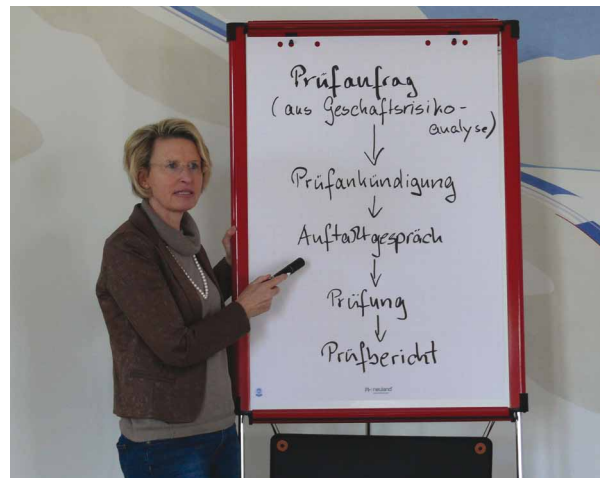 Prüfaufrag
(aus Geschäftsrisiko-
analyse)
Prüfankündigung
Auftaktgespräch
Prüfung
Prüfbericht
neuland